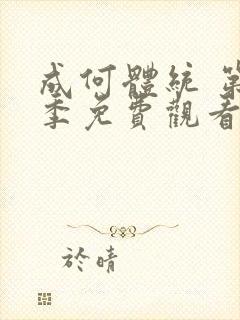 成何體統 第
季免費觀看
於晴